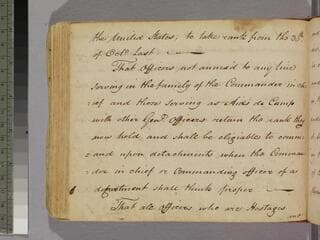 the United States; to take rank from the 3d
of Octr. last.
That Officers not annex'd to any line
serving in the family of the Commander in ch
ief and those serving as Aids de Camp
with other Genl. Officers retain the rank they
now hold, and shall be eligiable to comm
and upon detachments when the Comman
der in chief or Commanding officer of a
department shall think proper
That all Officers who are Hostages